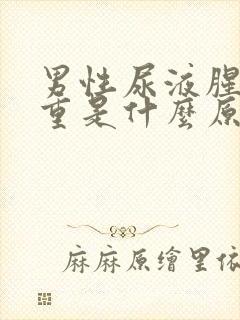 男性尿液腥
重是什麼原
麻麻原繪里依